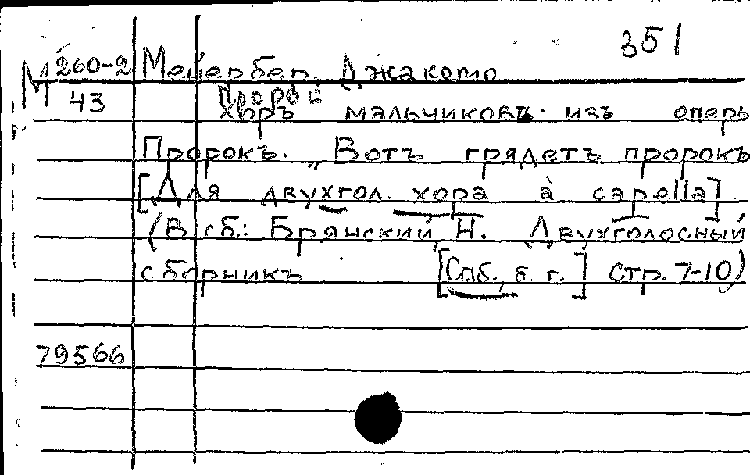 351
М 260-2 Мейербер, Джакомо
43 Пророк
хоръ мальчиковъ из оперы
Пророкъ. „Вотъ грядетъ пророкъ
[Для двухгол. хора à capella]
(В сб.: Брянский, Н. Двухголосный
сборникъ [Спб., б. г.] стр. 7-10)
79566